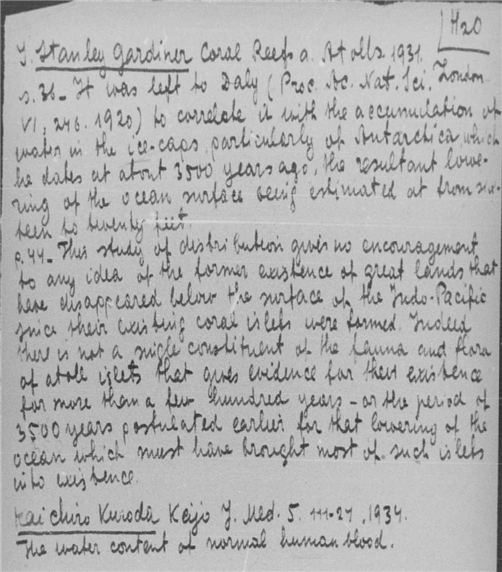 H2O
J. Stanley Gardiner Coral Reefs a. Atolls. 1931.
s. 36 - It was left to Daly (Proc. Ac. Nat. Sci. London
VI, 246. 1920) to correlate it with the accumulation of
water in the ice-caps, particularly of Antarctica which
he dates at about 3500 years ago, the resultant lowe-
ring of the ocean surface being estimated at from six-
teen to twenty feet.
p. 44 - This study of distribution gives no encouragement
to any idea of the former existence of great lands that
have disappeared below the surface of the Indo-Pacific
since their existing coral islets were formed. Indeed
there is not a single constituent of the fauna and flora
of atoll islets that gives evidence for their existence
for more than a few hundred years - or the period of
3500 years postulated earlier for that lowering of the
ocean which must have brought most of such islets
into existence.
Kaichiro Kuroda Keijo J. Med. 5. 111-27, 1934.
The water content of normal human blood.